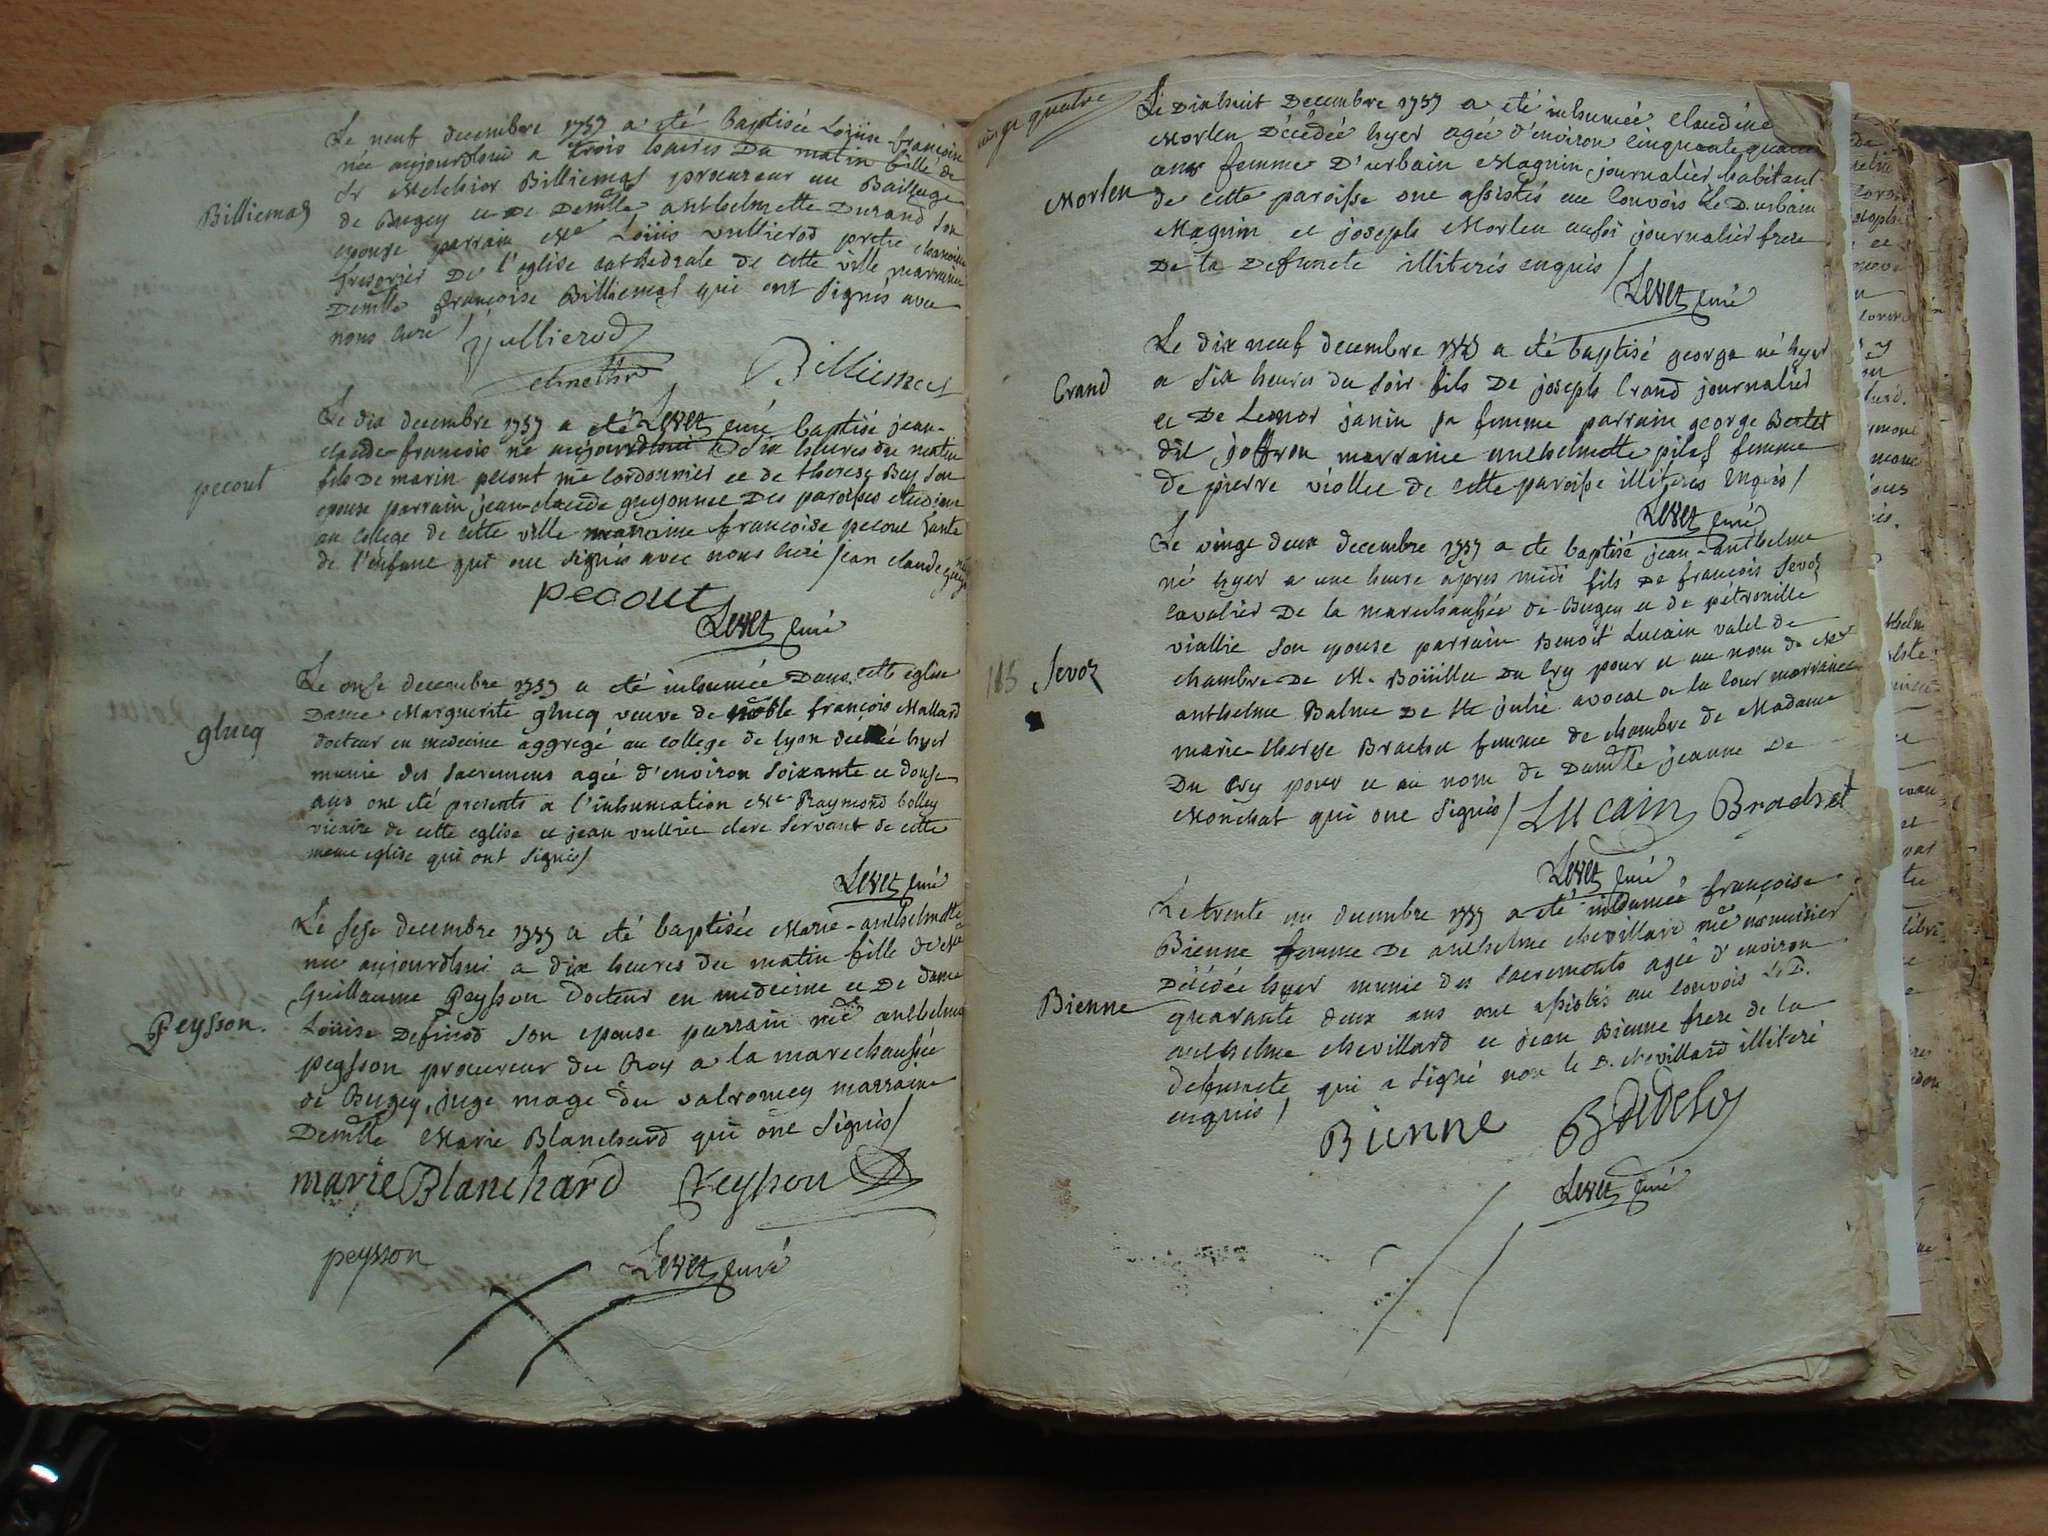 Billiemas
Le neuf decembre 1757 a été Baptisée Loüise françoise
née aujourdhui a trois heures Du matin fille de
Sr Melchior Billiemas procureur au Bailliage
de Bugey et De Demlle anthelmette Durand son
epouse parrain Mre Loüis vullierod pretre chanoine
tresorier De l'eglise cathedrale de cette ville marraine
Demlle françoise Billiemas qui ont signés avec
nous curé /
Vullierod
Billiemas
Levet curé
pecout
Le dix decembre 1757 a été baptisé jean-
claude-francois né aujourdhui a six heures du matin
fils De marin pecout me Cordonnier et de therese Bey son
epouse parrain jean-claude guyonnet Des paroises etudiant
au college de cette ville marraine francoise pecout tante
de l'enfant qui ont signés avec nous curé / jean claude
pecout
Levet curé
glucq
Le onse decembre 1757 a été inhumée Dans cette eglise
Dame Marguerite glucq veuve de noble françois Mallard
docteur en medecine aggregé au college de lyon hyer
munie des sacremens agée d'environ soixante et douse
ans ont été presents a l'inhumation Mre Raymond bolley
vicaire de cette eglise et jean vulliet clerc servant de cette
meme eglise qui ont signés /
Levet curé
Peysson.
Le sese decembre 1757 a été baptisée Marie-anthelmette
née aujourdhui a dix heures du matin fille de Mre
Guillaume Peysson Docteur en medecine et De dame
Loüise Definod son epouse parrain me anthelme
peysson procureur du Roy a la marechaussée
de Bugey, juge mage du valromey marraine
Demlle Marie Blanchard qui ont signés /
marie Blanchard Peysson
peysson
Levet curé
vingt quatre
Morlen
Le Dixhuit Decembre 1757 a été inhumée claudine
Morlen Décédée hyer agée d'environ cinquante quatre
ans femme D'urbain Magnin journalier habitant
de cette paroisse ont assistés au convois Le D. urbain
Magnin et joseph Morlen aussi journalier frere
De la Defuncte illiterés enquis /
Levet curé
Crand
Le dix neuf decembre 1757 a été baptisé george né hyer
a six heures du soir fils De joseph Crand journalier
et De Leonor janin sa femme parrain george Bertet
dit joffron marraine anthelmette pilas femme
de pierre viollet de cette paroisse illiterés enquis /
Levet curé
113 Sevoz
Le vingt deux decembre 1757 a été baptisé jean-anthelme
né hyer a une heure apres midi fils De françois Sevoz
cavalier De la marechaussée de Bugey et de pétronille
viallie son epouse parrain Benoit Lucain valet de
chambre De M. Boüillet Du Cry pour et au nom de Mre
anthelme Balme De Ste julie avocat a la cour marraine
marie-therese Brachet femme de chambre de Madame
Du Cry pour et au nom de Demlle jeanne De
Monchat qui ont signés / Lucain Brachet
Levet curé
Bienne
Le trente un decembre 1757 a été inhumée françoise
Bienne femme De anthelme chevillard me menuisier
Décédée hyer munie des sacrements agée d'environ
quarante deux ans ont assistés au convois Le D.
anthelme chevillard et jean Bienne frere de la
defuncte qui a signé non le D. chevillard illiteré
enquis /
Bienne
Levet curé